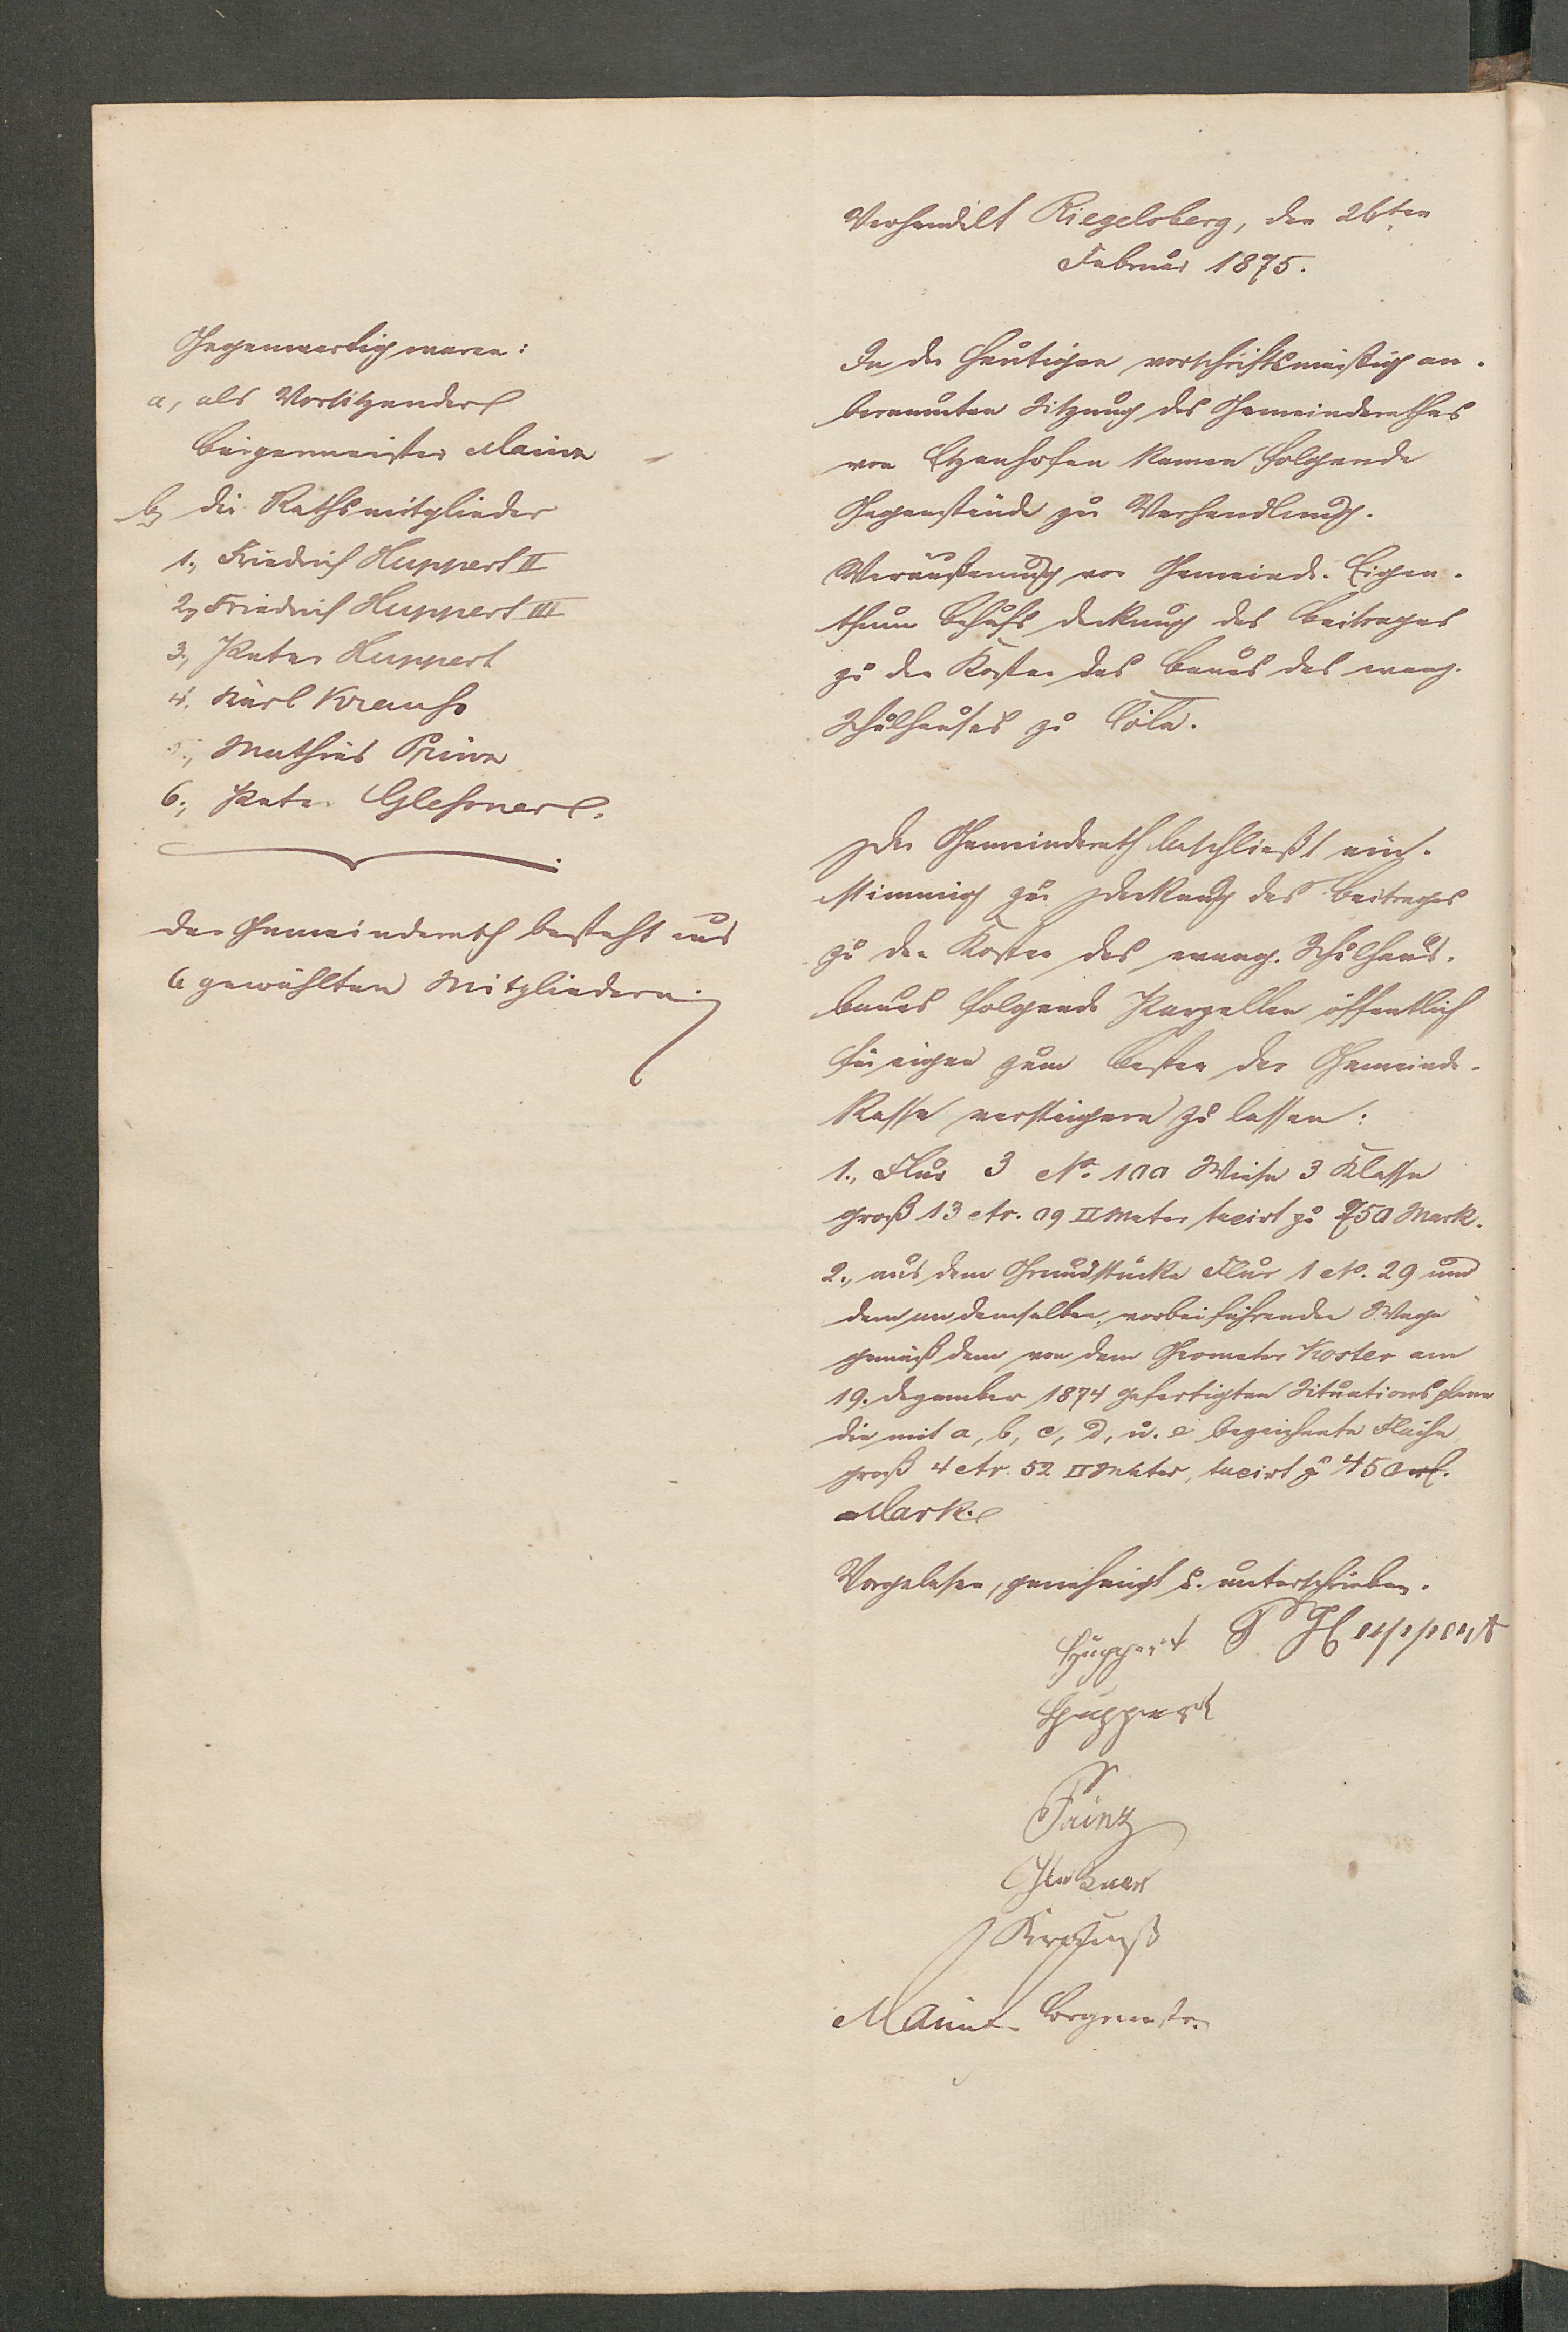 Verhandelt Riegelsberg, den 26ten
Februar 1875.
Gegenwertig waren:
a, als Vorsitzender
Bürgermeister Mainz
b, die Rathsmitglieder
1., Friedrich Huppert II
2, Friedrich Huppert III
3, Peter Huppert
4. Karl Krauß
5., Mathias Prinz
6., Peter Glessner.
Der Gemeinderath besteht aus
6 gewählten Mitgliedern.
In der heutigen vorschriftsmäßig an-
beraumten Sitzung des Gemeinderathes
von Etzenhofen kamen folgende
Gegenstände zur Verhandlung.
Veräußerung von Gemeinde-Eigen-
thum behufs Deckung des Beitrages
zu den Kosten des Baues des evang.
Schulhauses zu Cöln.
Der Gemeinderath beschließt ein-
stimmig zur Deckung des Beitrages
zu den Kosten des evang. Schulhaus-
baues folgende Parzellen öffentlich
für eigen zum Besten der Gemeinde-
Kasse versteigern zu lassen:
1., Flur 3 No. Wiese 3 Klasse
groß 13 Ar. 09 □Meter taxirt zu 750 Mark.
2., aus dem Grundstücke Flur 1 No. 29 und
dem an demselben vorbeiführenden Wege
gemäß dem von dem Geometer Koster am
19. Dezember 1874 gefertigten Situationsplane
die mit a, b, c, d, u. e bezeichnete Fläche
groß 4 Ar. 52 □Meter, taxirt zu 450
Mark.
Vorgelesen, genehmigt u. unterschrieben.
Huppert P Huppert
Huppert
Prinz
Glessner
Krauß
Mainz Bürgermstr.